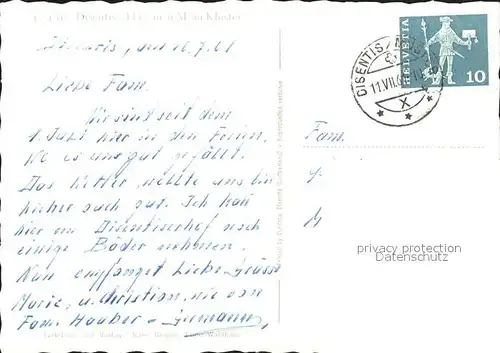 Disentis, den 16.7.61
Liebe Fam.
Wir sind seit dem
1. Juli hier in den Ferien,
wo es uns gut gefällt.
Das Wetter, wollte uns bis
hieher auch gut. Ich kann
hier im Disentiserhof noch
einige Bäder nehmen.
Nun empfanget Liebe Grüsse
Marie, u. Christian, wie von
Fam. Hauber -
Fam.
HELVETIA
10
DISENTIS/MUSTER
17.VII.6
X
privacy protection
Datenschutz